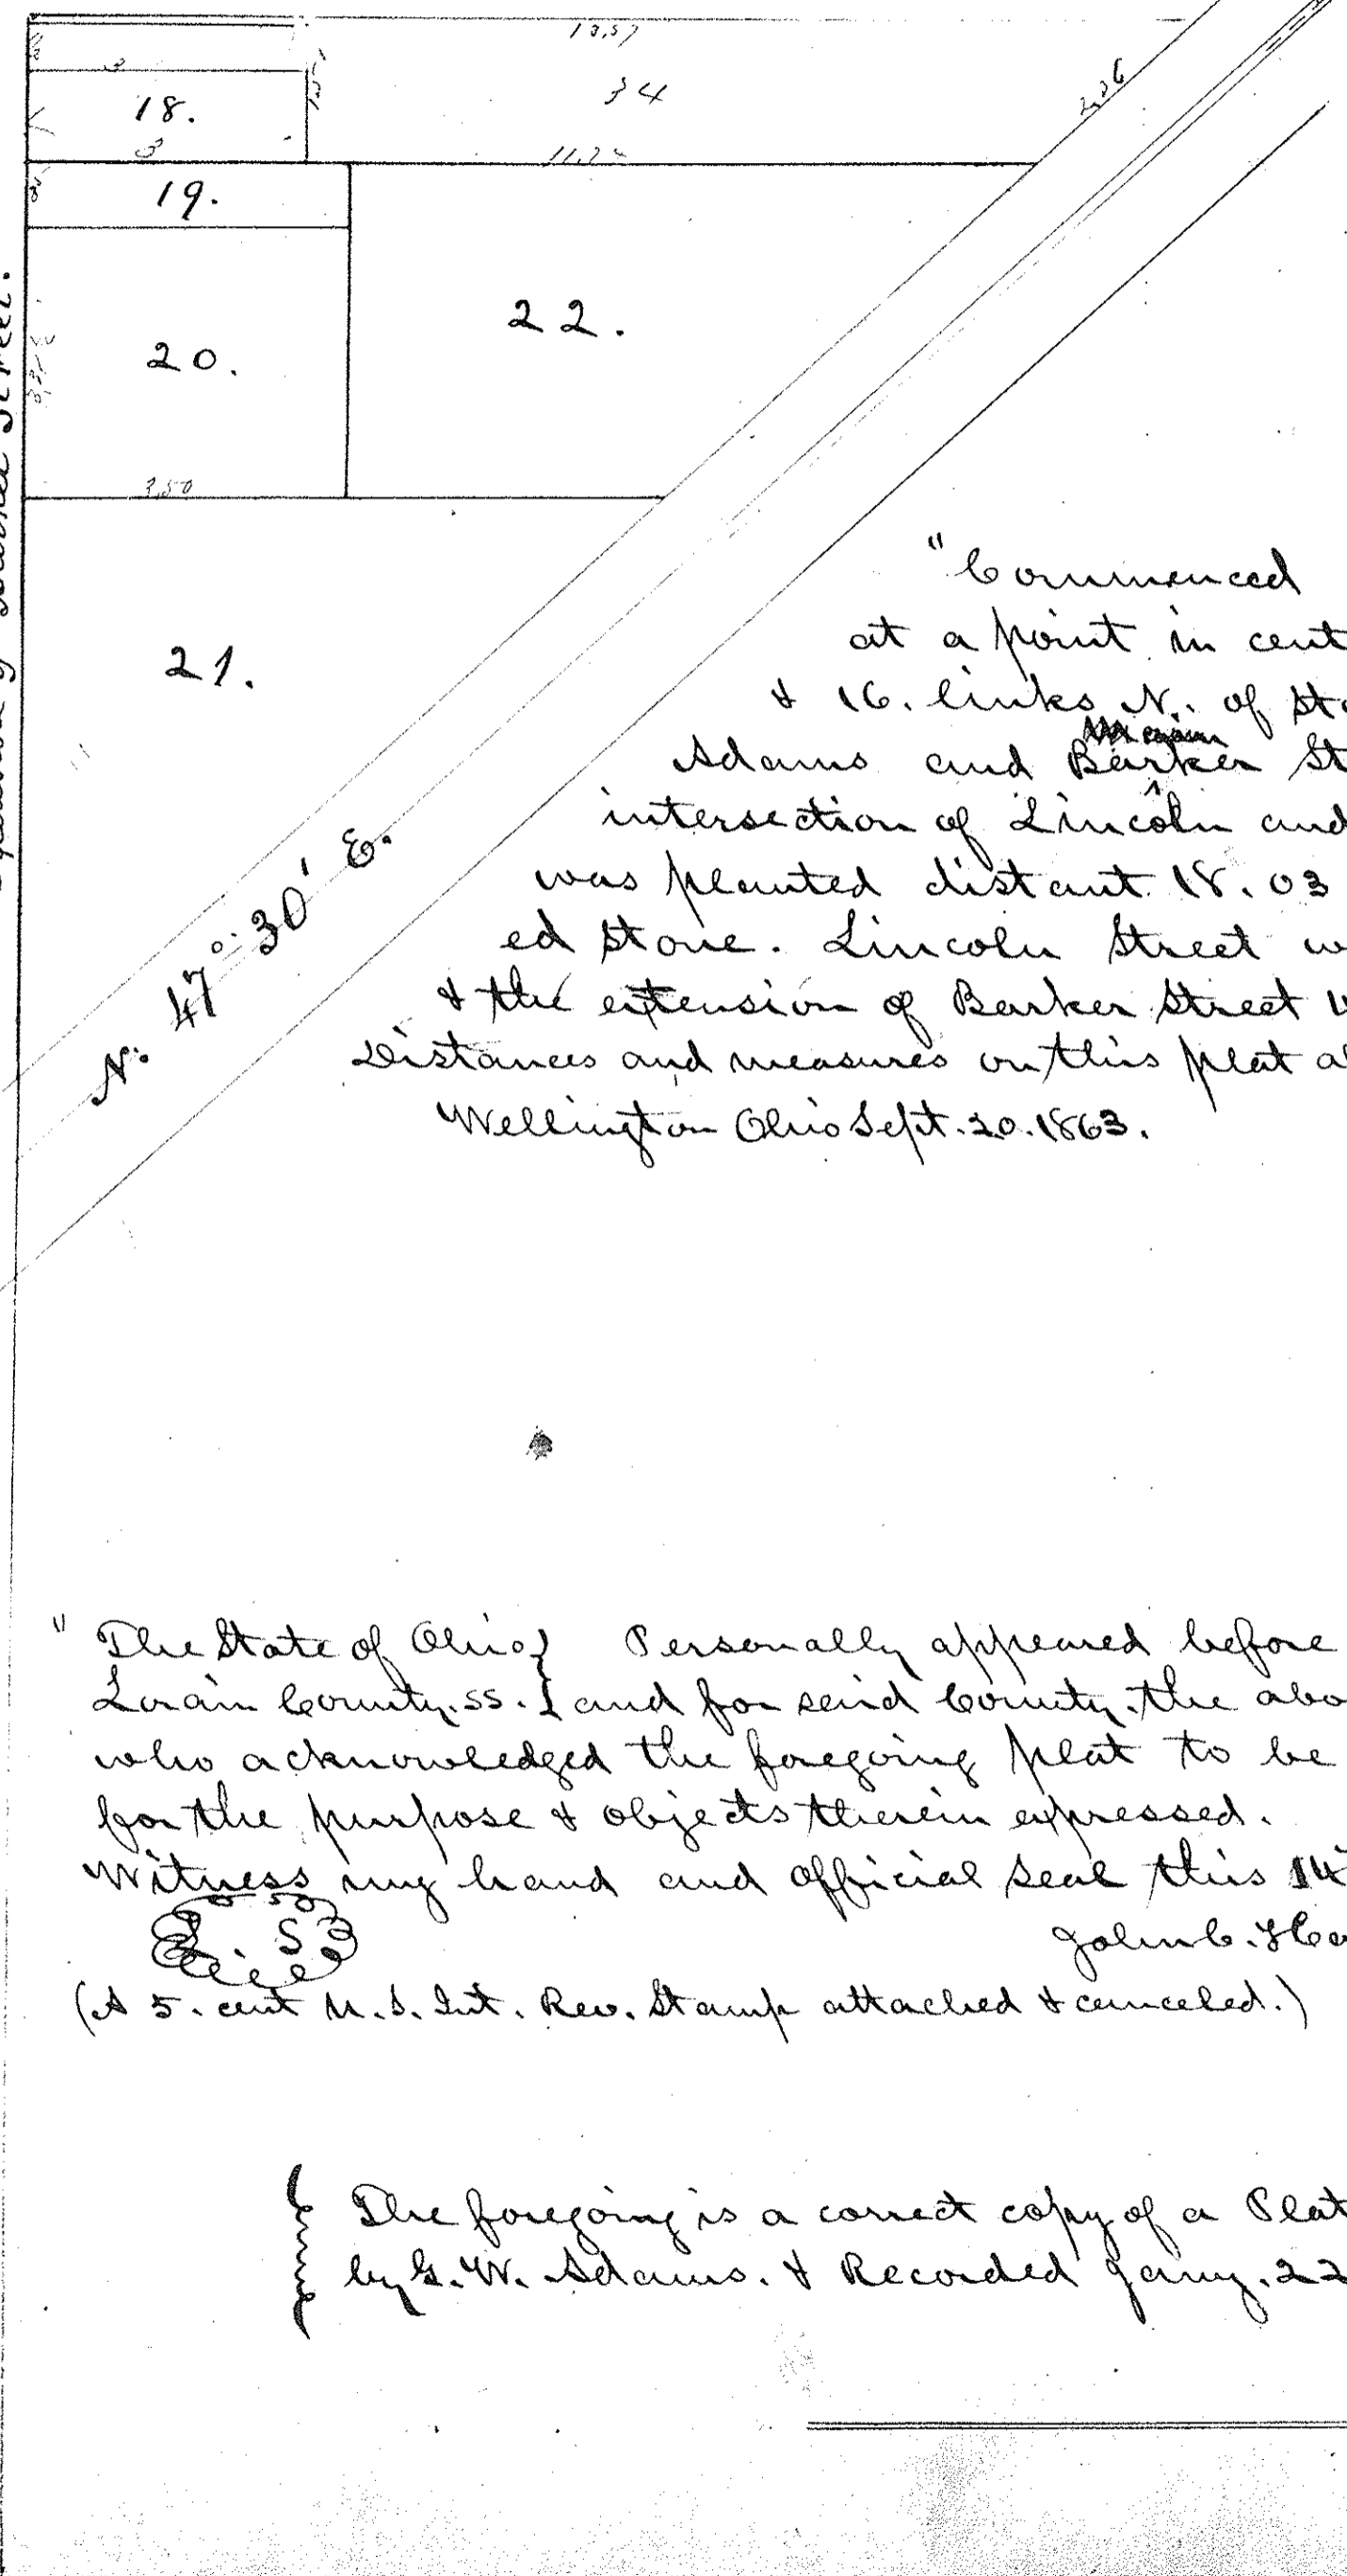 13,57
34
18.
19.
20.
22.
3,50
21.
N. 47° 30' E.
Street.
"Commenced
at a point in cent
& 16. links N. of st
Adams and Barker St
intersection of Lincoln and
was planted distant 18.03
ed stone. Lincoln Street w
& the extension of Barker Street
Distances and measures on this plat a
Wellington Ohio Sept. 20. 1863.
" The State of Ohio } Personally appeared before
Lorain County. ss. } and for said County. the abo
who acknowledged the foregoing plat to be
for the purpose & objects therein expressed.
Witness my hand and official seal this 14
L. S.
John C.
(A 5. cent U. S. Int. Rev. Stamp attached & canceled.)
The foregoing is a correct copy of a Plat
by G. W. Adams. & Recorded Jany. 22